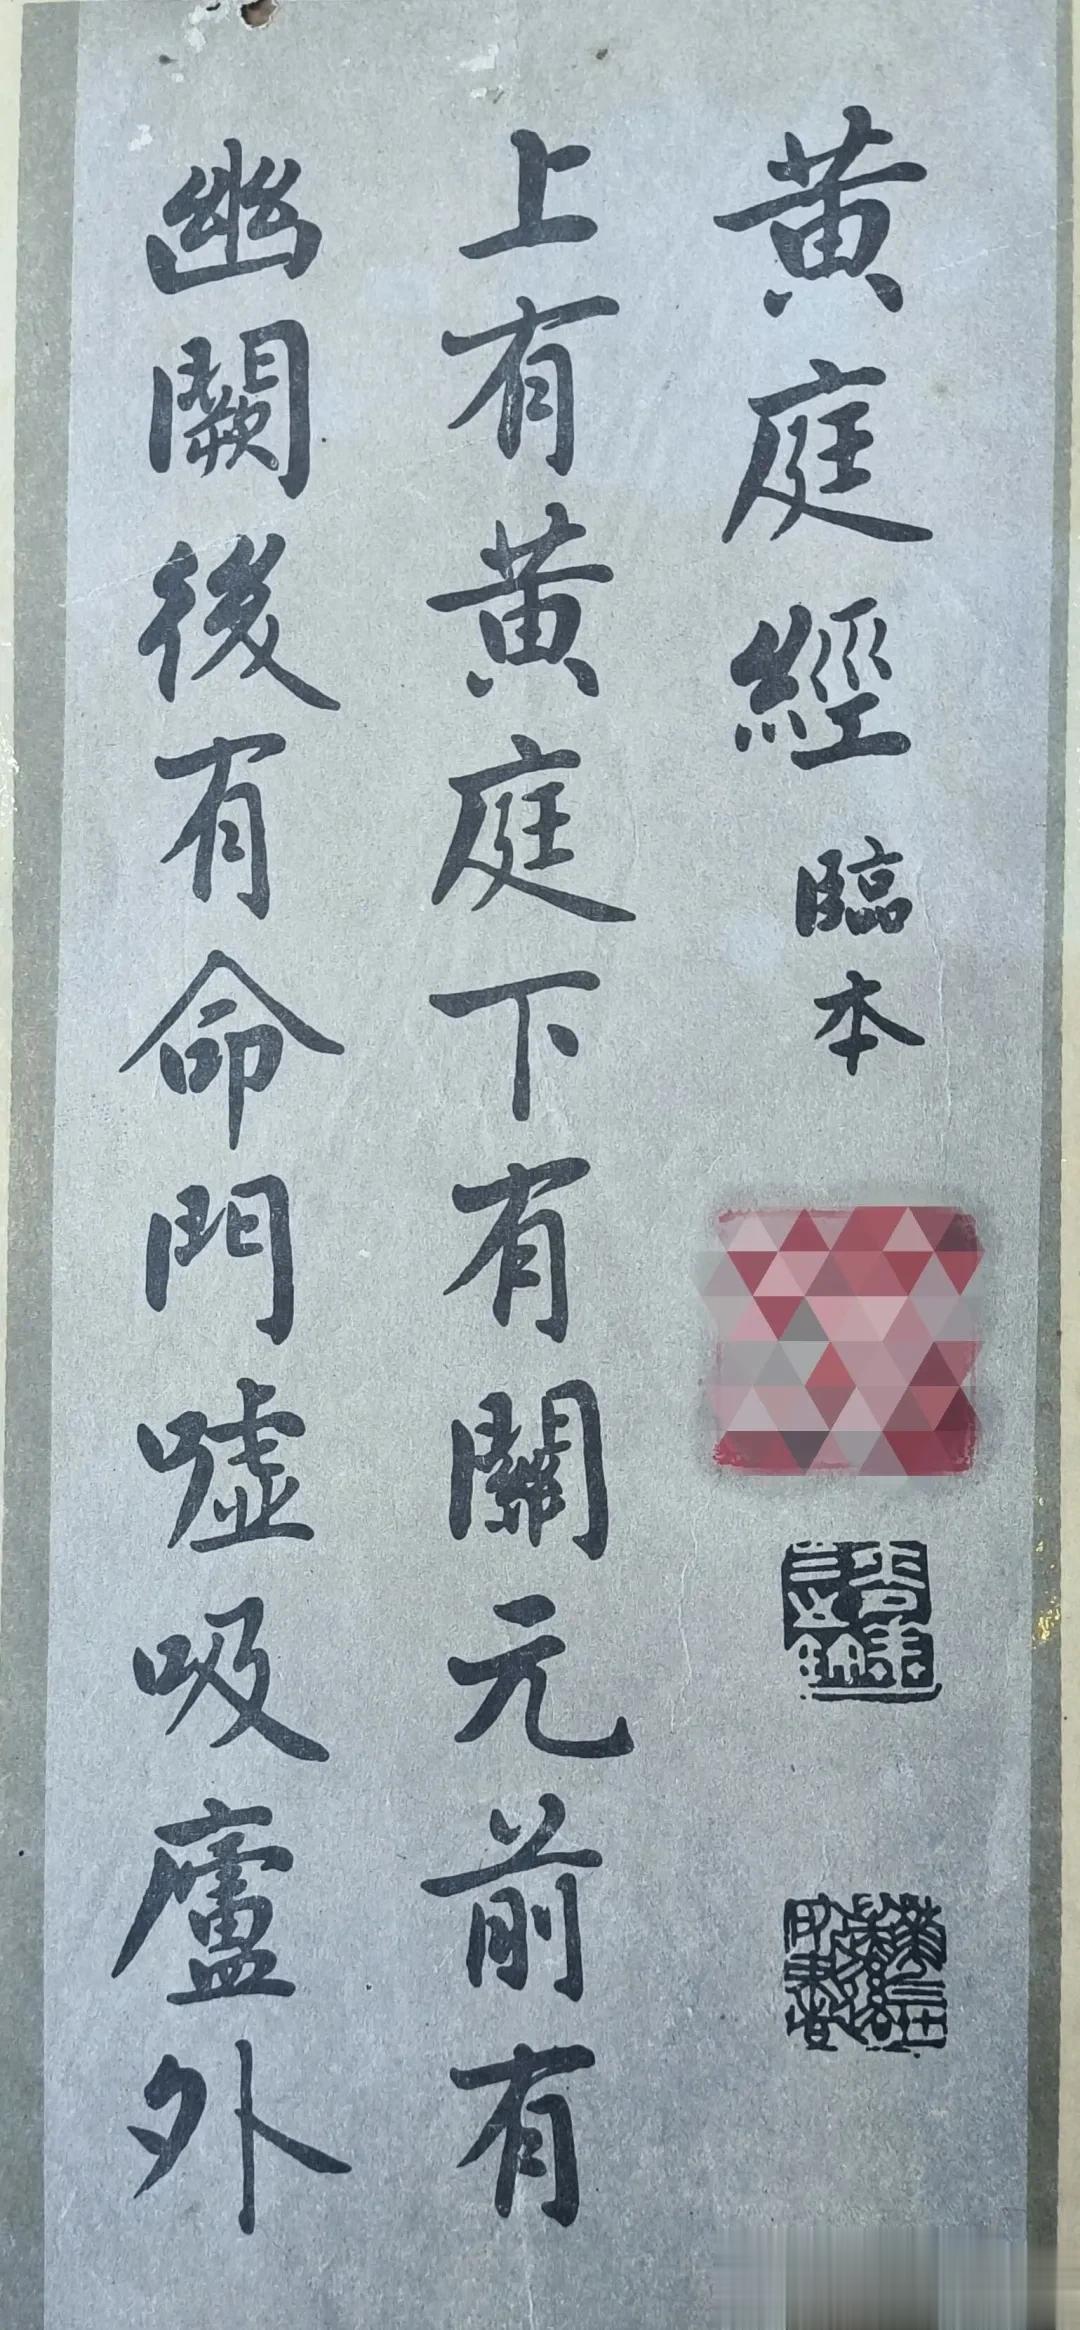 黄庭經 臨本
上有黄庭下有關元前有
幽闕後有命門噓吸廬外